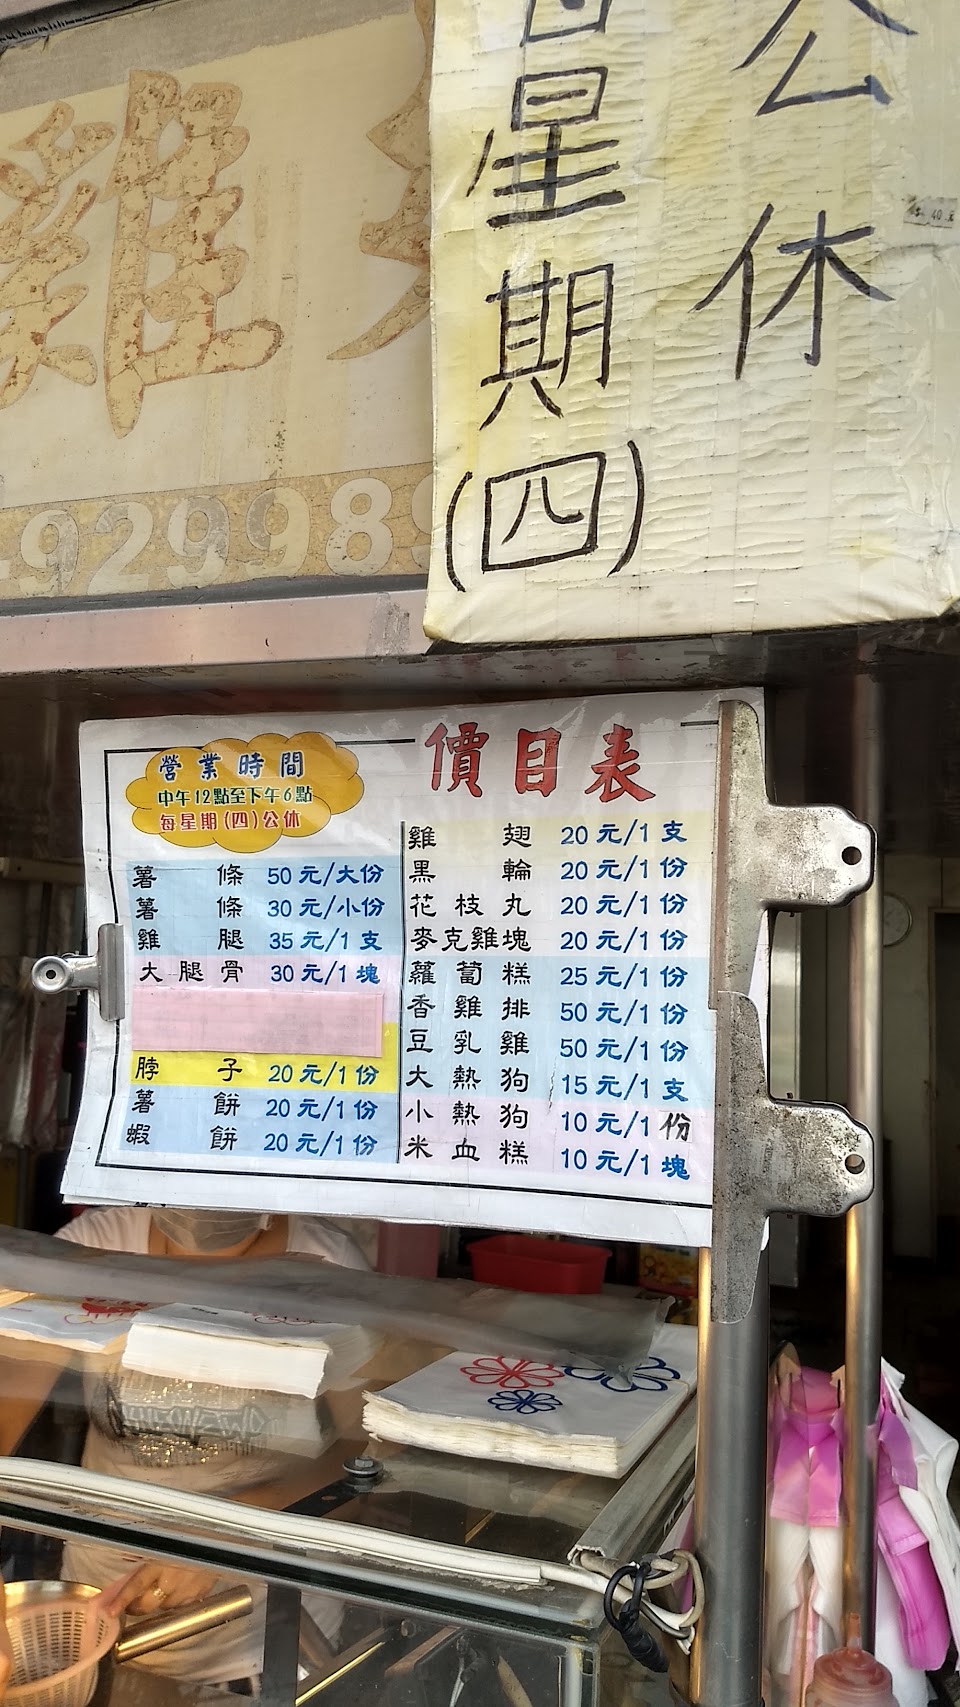 雞
929989
公休
星期
(四)
價目表
營業時間
中午12點至下午6點
每星期(四)公休
薯條 50元/大份
薯條 30元/小份
雞腿 35元/1支
大腿骨 30元/1塊
脖子 20元/1份
薯餅 20元/1份
蝦餅 20元/1份
雞翅 20元/1支
黑輪 20元/1份
花枝丸 20元/1份
麥克雞塊 20元/1份
蘿蔔糕 25元/1份
香雞排 50元/1份
豆乳雞 50元/1份
大熱狗 15元/1支
小熱狗 10元/1份
米血糕 10元/1塊